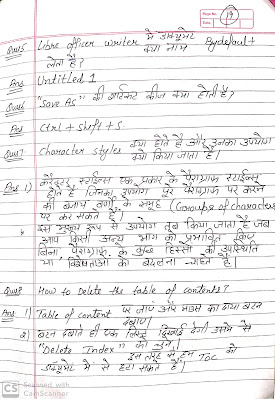 Page No. 19
Date
Ques5 Libre officer writer में डॉक्यूमेंट Bydefault
क्या नाम
लेता है?
Ans Untitled 1
Ques6 "Save As" की शार्टकट कीज क्या होती है?
Ans Ctrl + Shift + S
Ques7 Character styles क्या होते हैं और उनका उपयोग
क्यों किया जाता है।
Ans 1) कैरेक्टर स्टाईल्स एक प्रकार के पैराग्राफ स्टाईल्स
होते हैं जिनका उपयोग पर पैराग्राफ पर करने
की बजाय वर्णों के समूह (Groups of characters
पर कर सकते हैं।
इस मुख्य रूप से उपयोग तब किया जाता है जब
आप किसी अन्य भाग को प्रभावित किए
बिना पैराग्राफ के कुछ हिस्से की उपस्थिति
या विशेषताओं को बदलना चाहते हैं।
Ques8 How to Delete the table of contents?
Ans 1) Table of content पर जाएं और माउस का दायां बटन
दबाएं।
2) बटन दबाते ही एक लिस्ट दिखाई देगी उसमें से
"Delete Index" को चुनें।
इस तरह से हम TOC को
डॉक्यूमेंट में से हटा सकते हैं।
CS Scanned with
CamScanner